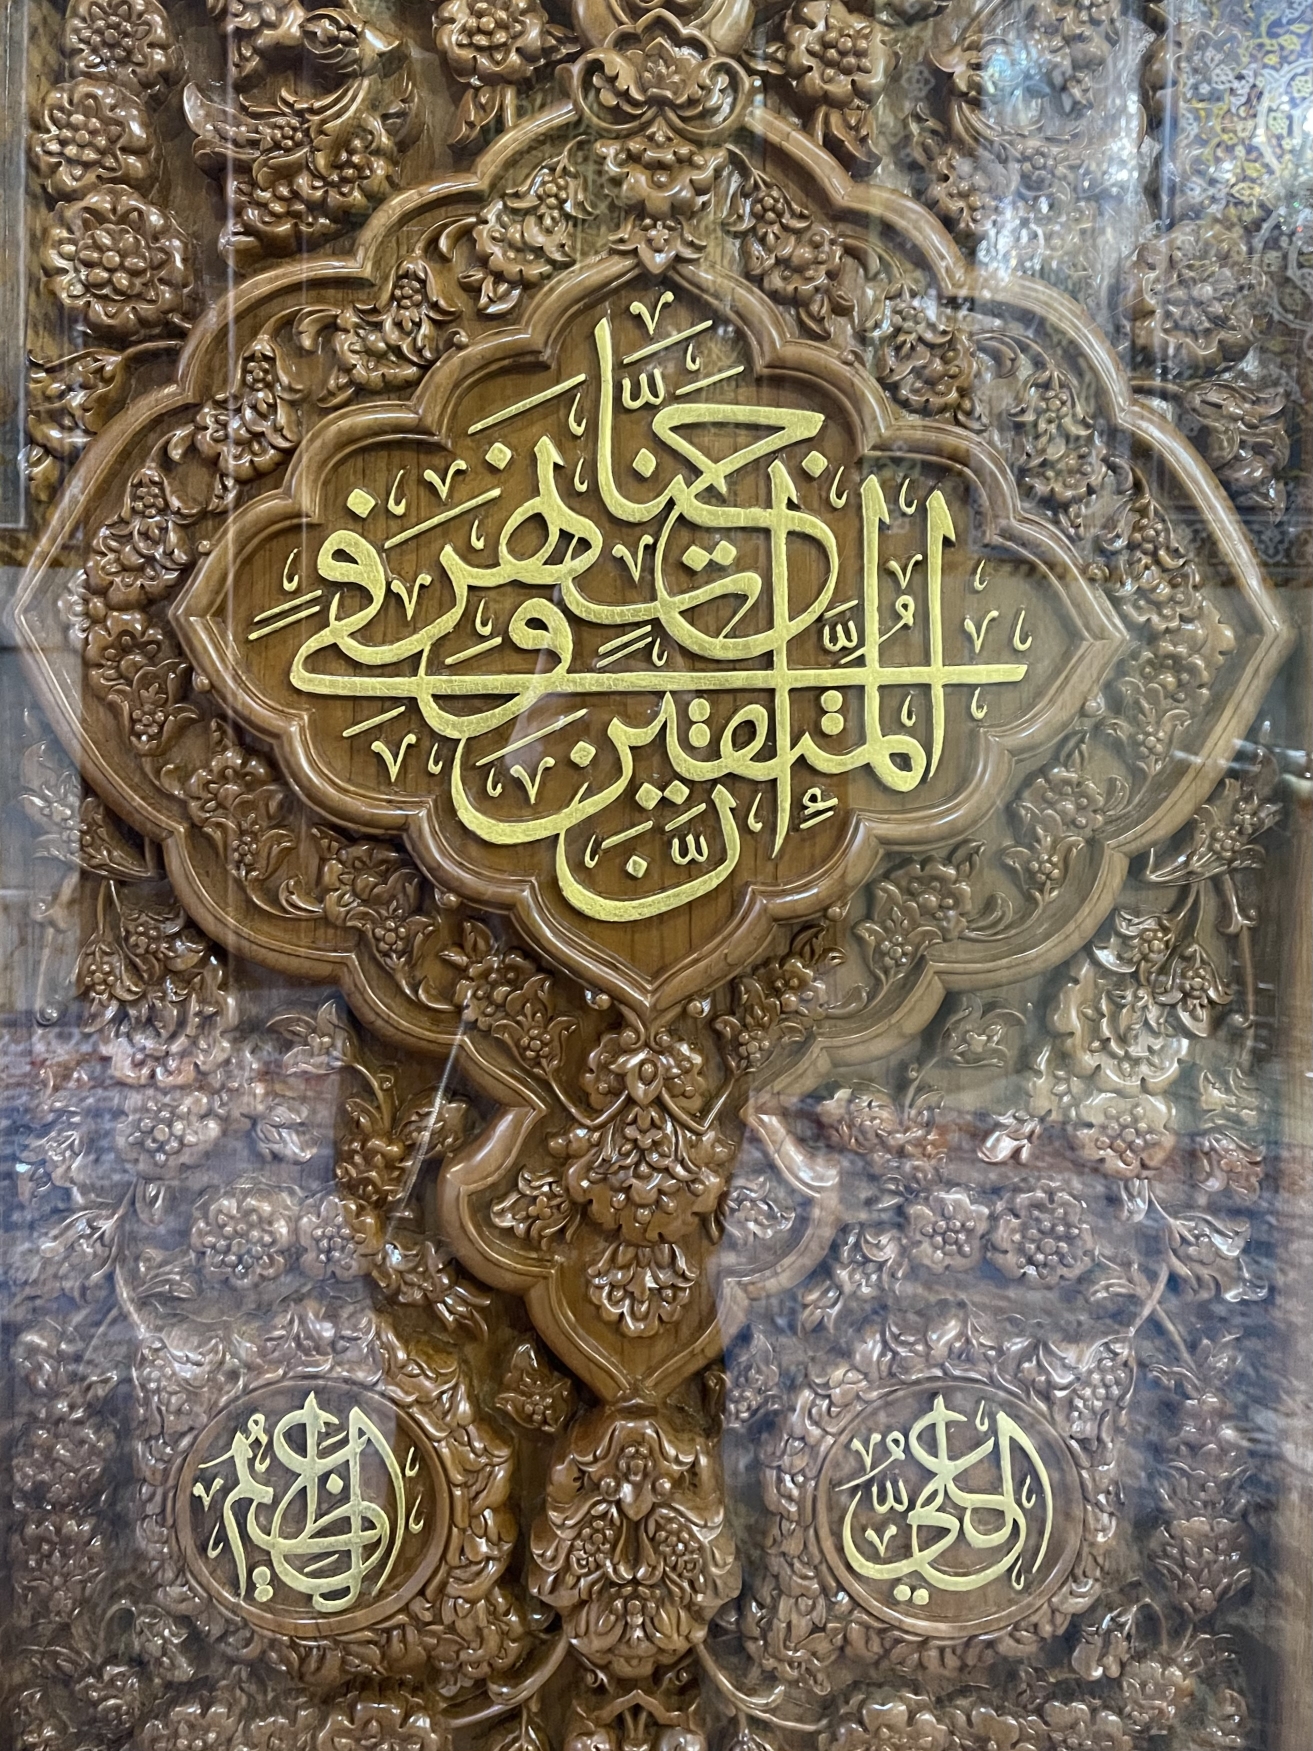 إِنَّ الْمُتَّقِينَ فِي جَنَّاتٍ وَنَهَرٍ
الْعَلِيُّ
الْعَظِيمُ